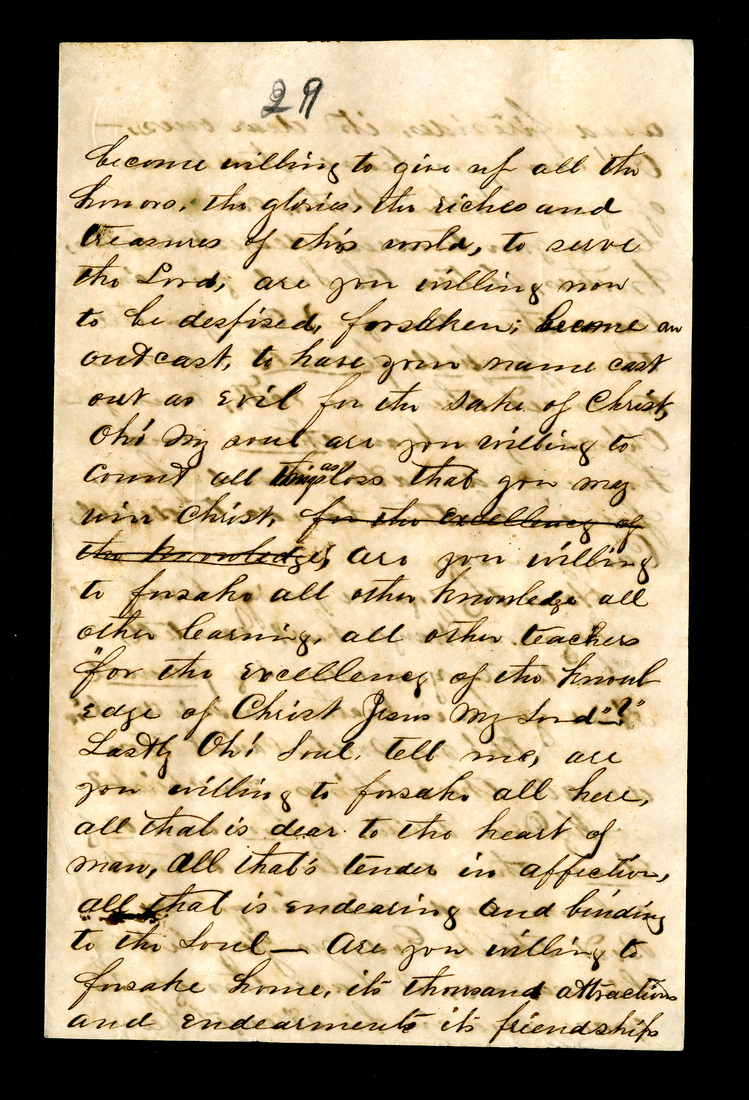 29
become willing to give up all the
honors, the glories, the riches and
treasures of this world, to serve
the Lord, are you willing now
to be despised, forsaken; become an
outcast, to have your name cast
out as evil for the sake of Christ,
Oh! My soul are you willing to
Count all things as loss that you may
win Christ, for the excellency of
the knowledge, are you willing
to forsake all other knowledge all
other learning, all other teachers
"for the excellency of the knowl
edge of Christ Jesus My Lord"?"
Lastly Oh! Soul, tell me, are
you willing to forsake all here,
all that is dear to the heart of
man, all that's tender in affection,
all that is endearing and binding
to the Soul— Are you willing to
forsake home, its thousand attractions
and endearments its friendships